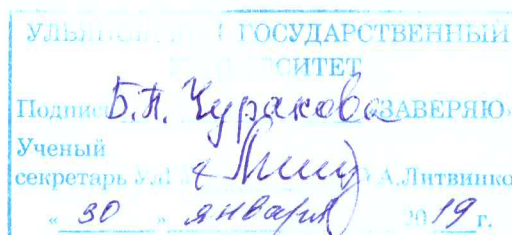 УЛЬЯНОВСКИЙ ГОСУДАРСТВЕННЫЙ
УНИВЕРСИТЕТ
Подпись Б.П. Чуракова ЗАВЕРЯЮ
Ученый
секретарь УлГУ А.Литвинко
« 30 » января 2019 г.